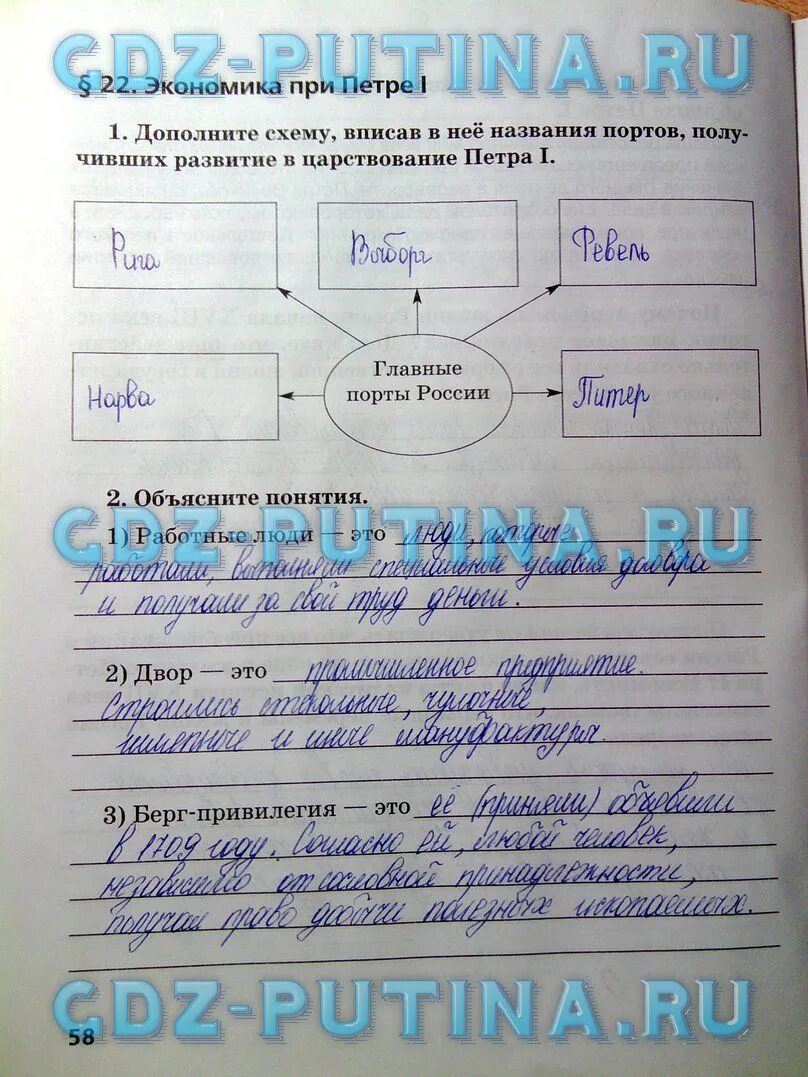 GDZ-PUTINA.RU
§ 22. Экономика при Петре I
1. Дополните схему, вписав в неё названия портов, полу-
чивших развитие в царствование Петра I.
Рига
Выборг
Ревель
Главные
порты России
Нарва
Питер
2. Объясните понятия.
GDZ-PUTINA.RU
1) Работные люди — это люди, которые
работали, выполняли специальные условия договора
и получали за свой труд деньги.
2) Двор — это промышленное предприятие.
Строились стекольные, чулочные,
и иные мануфактуры.
3) Берг-привилегия — это её (приняли) объявили
в 1709 году. Согласно ей, любой человек,
независимо от сословной принадлежности,
получал право добычи полезных ископаемых.
GDZ-PUTINA.RU
58